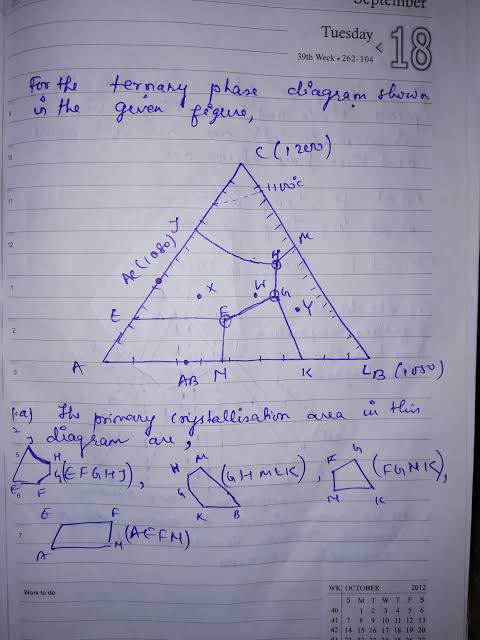 September
Tuesday
39th Week • 262-104
18
For the ternary phase diagram shown
in the given figure,
C (1200)
1100°C
J
M
AC (1080)
H
X
W
G
Y
E
E
A
AB
N
K
L
B (1050)
(a) The primary crystallisation area in this
diagram are,
H
G
E
F
(EFGHJ),
M
H
G
K
B
(GHMLK),
G
F
N
K
(FGNK),
E
F
A
M
(AEFM)
Work to do
WK OCTOBER 2012
S M T W T F S
40 1 2 3 4 5 6
41 7 8 9 10 11 12 13
42 14 15 16 17 18 19 20